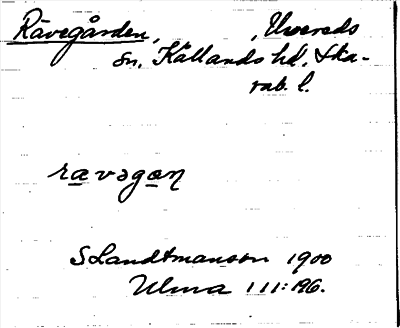 Rävegården, , Uvereds
sn, Kållands hd, Ska-
rab. l.
rävəgαɲ
SLandtmanson 1900
Ulma 111:196.